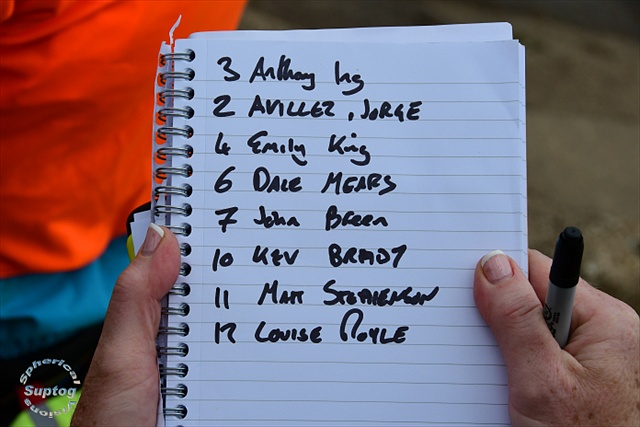 3 Anthony Ing
2 AVILLEZ, JORGE
4 Emily King
6 DALE MEARS
7 John Breen
10 KEV BRADY
11 Matt STEPHENSON
12 LOUISE ROYLE
Spherical
Suptog
Visions